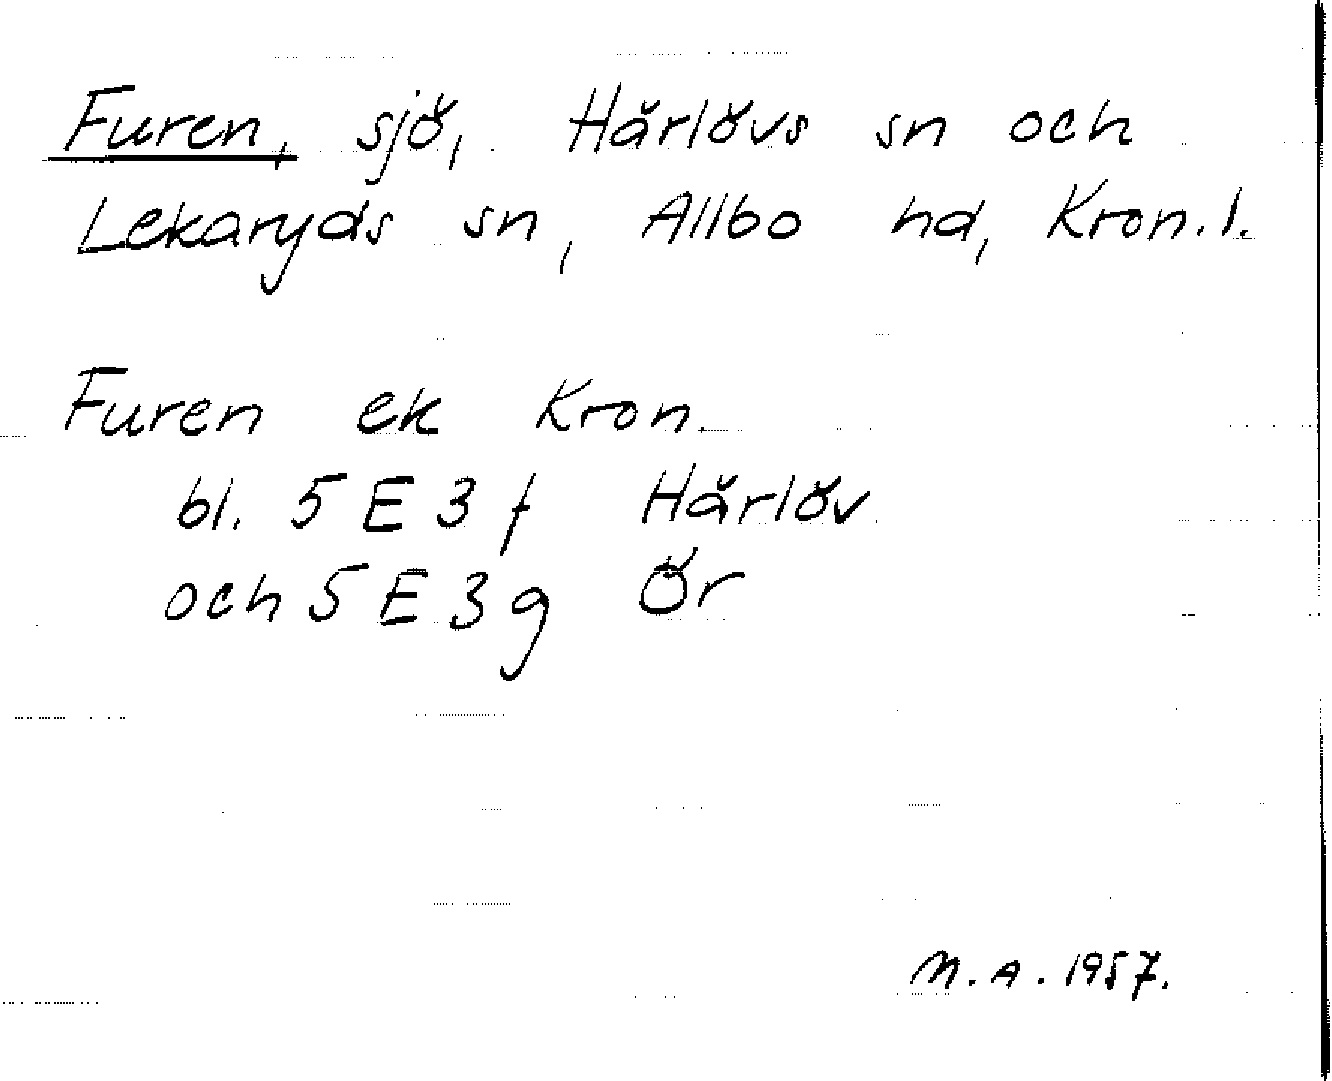 Furen, sjö, Härlövs sn och
Lekaryds sn, Allbo hd, Kron.l.
Furen ek Kron.
bl. 5E3f Härlöv
och 5E3g Ör
M.A. 1957.